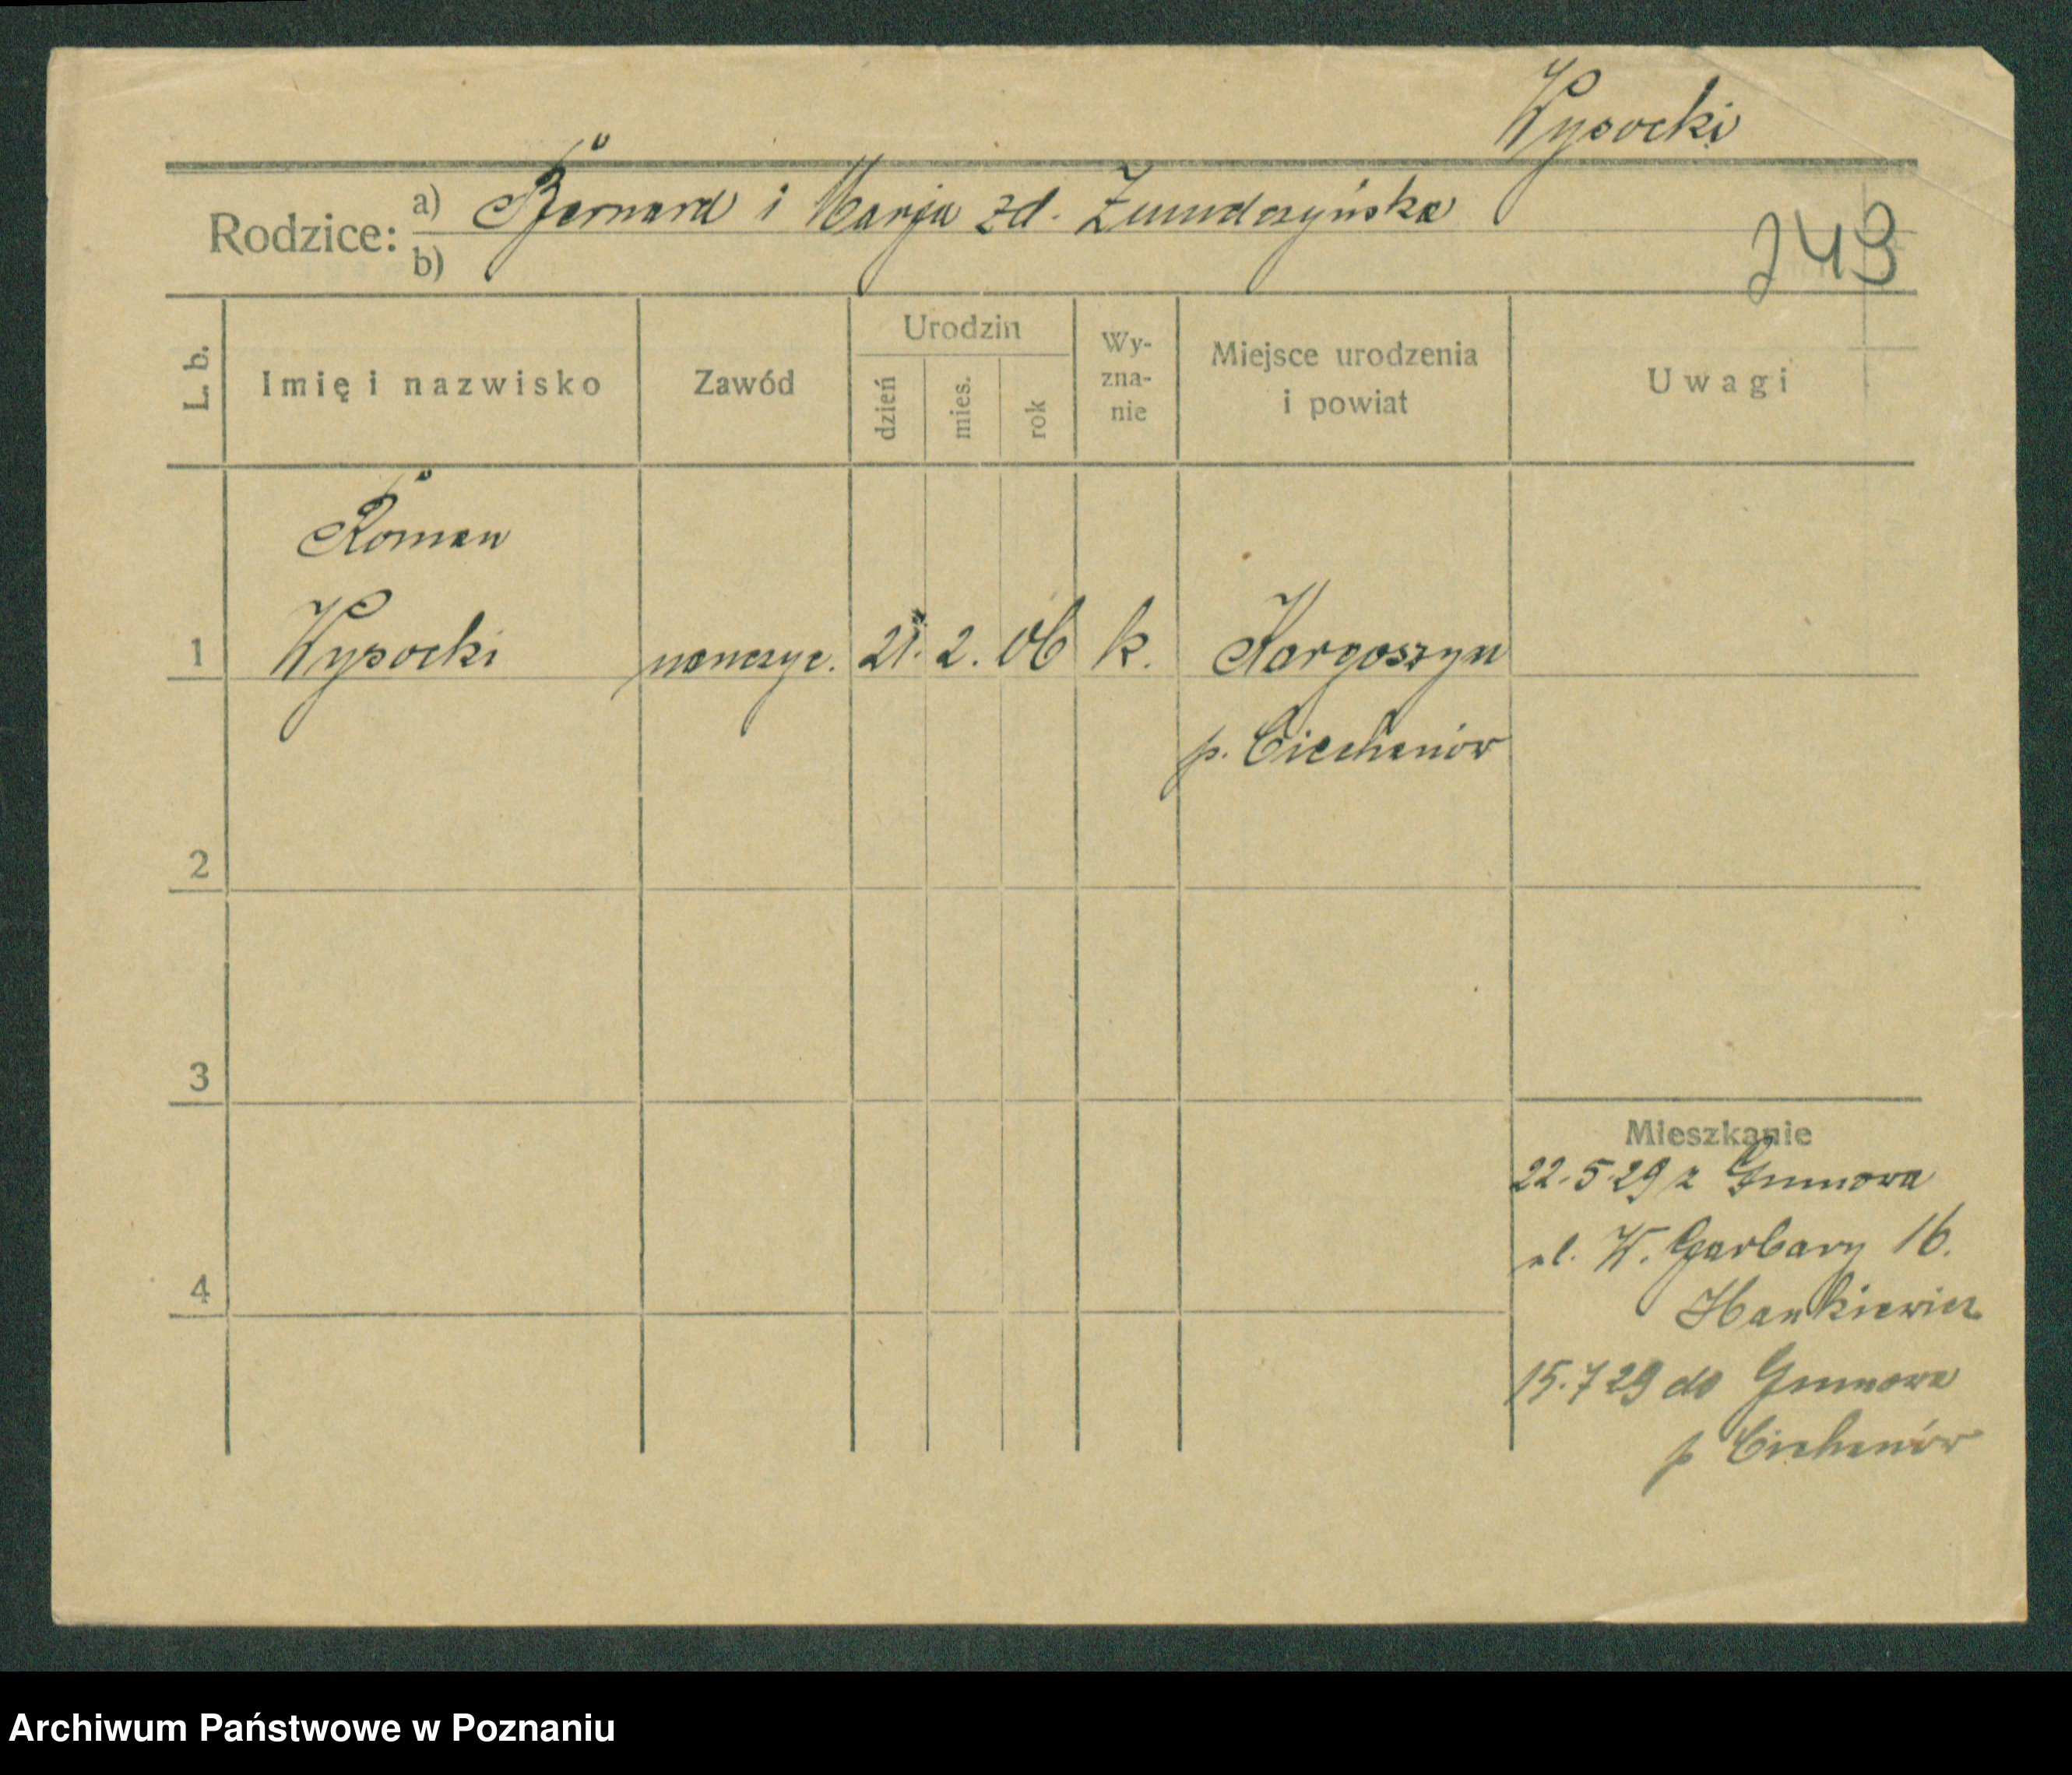 Wysocki
Rodzice: a) Bernard i Marja zd. Żmudczyńska
b)
249
L. b. Imię i nazwisko Zawód Urodzin dzień mies. rok Wy-zna-nie Miejsce urodzenia i powiat Uwagi
Roman
1 Wysocki nauczyc. 21. 2. 06 k. Kargoszyn
p. Ciechanów
2
3
Mieszkanie
22.5.29 z Gumowa
ul. W. Garbary 16.
Hankiewicz
4
15.7 29 do Gumowa
p Ciechanów
Archiwum Państwowe w Poznaniu